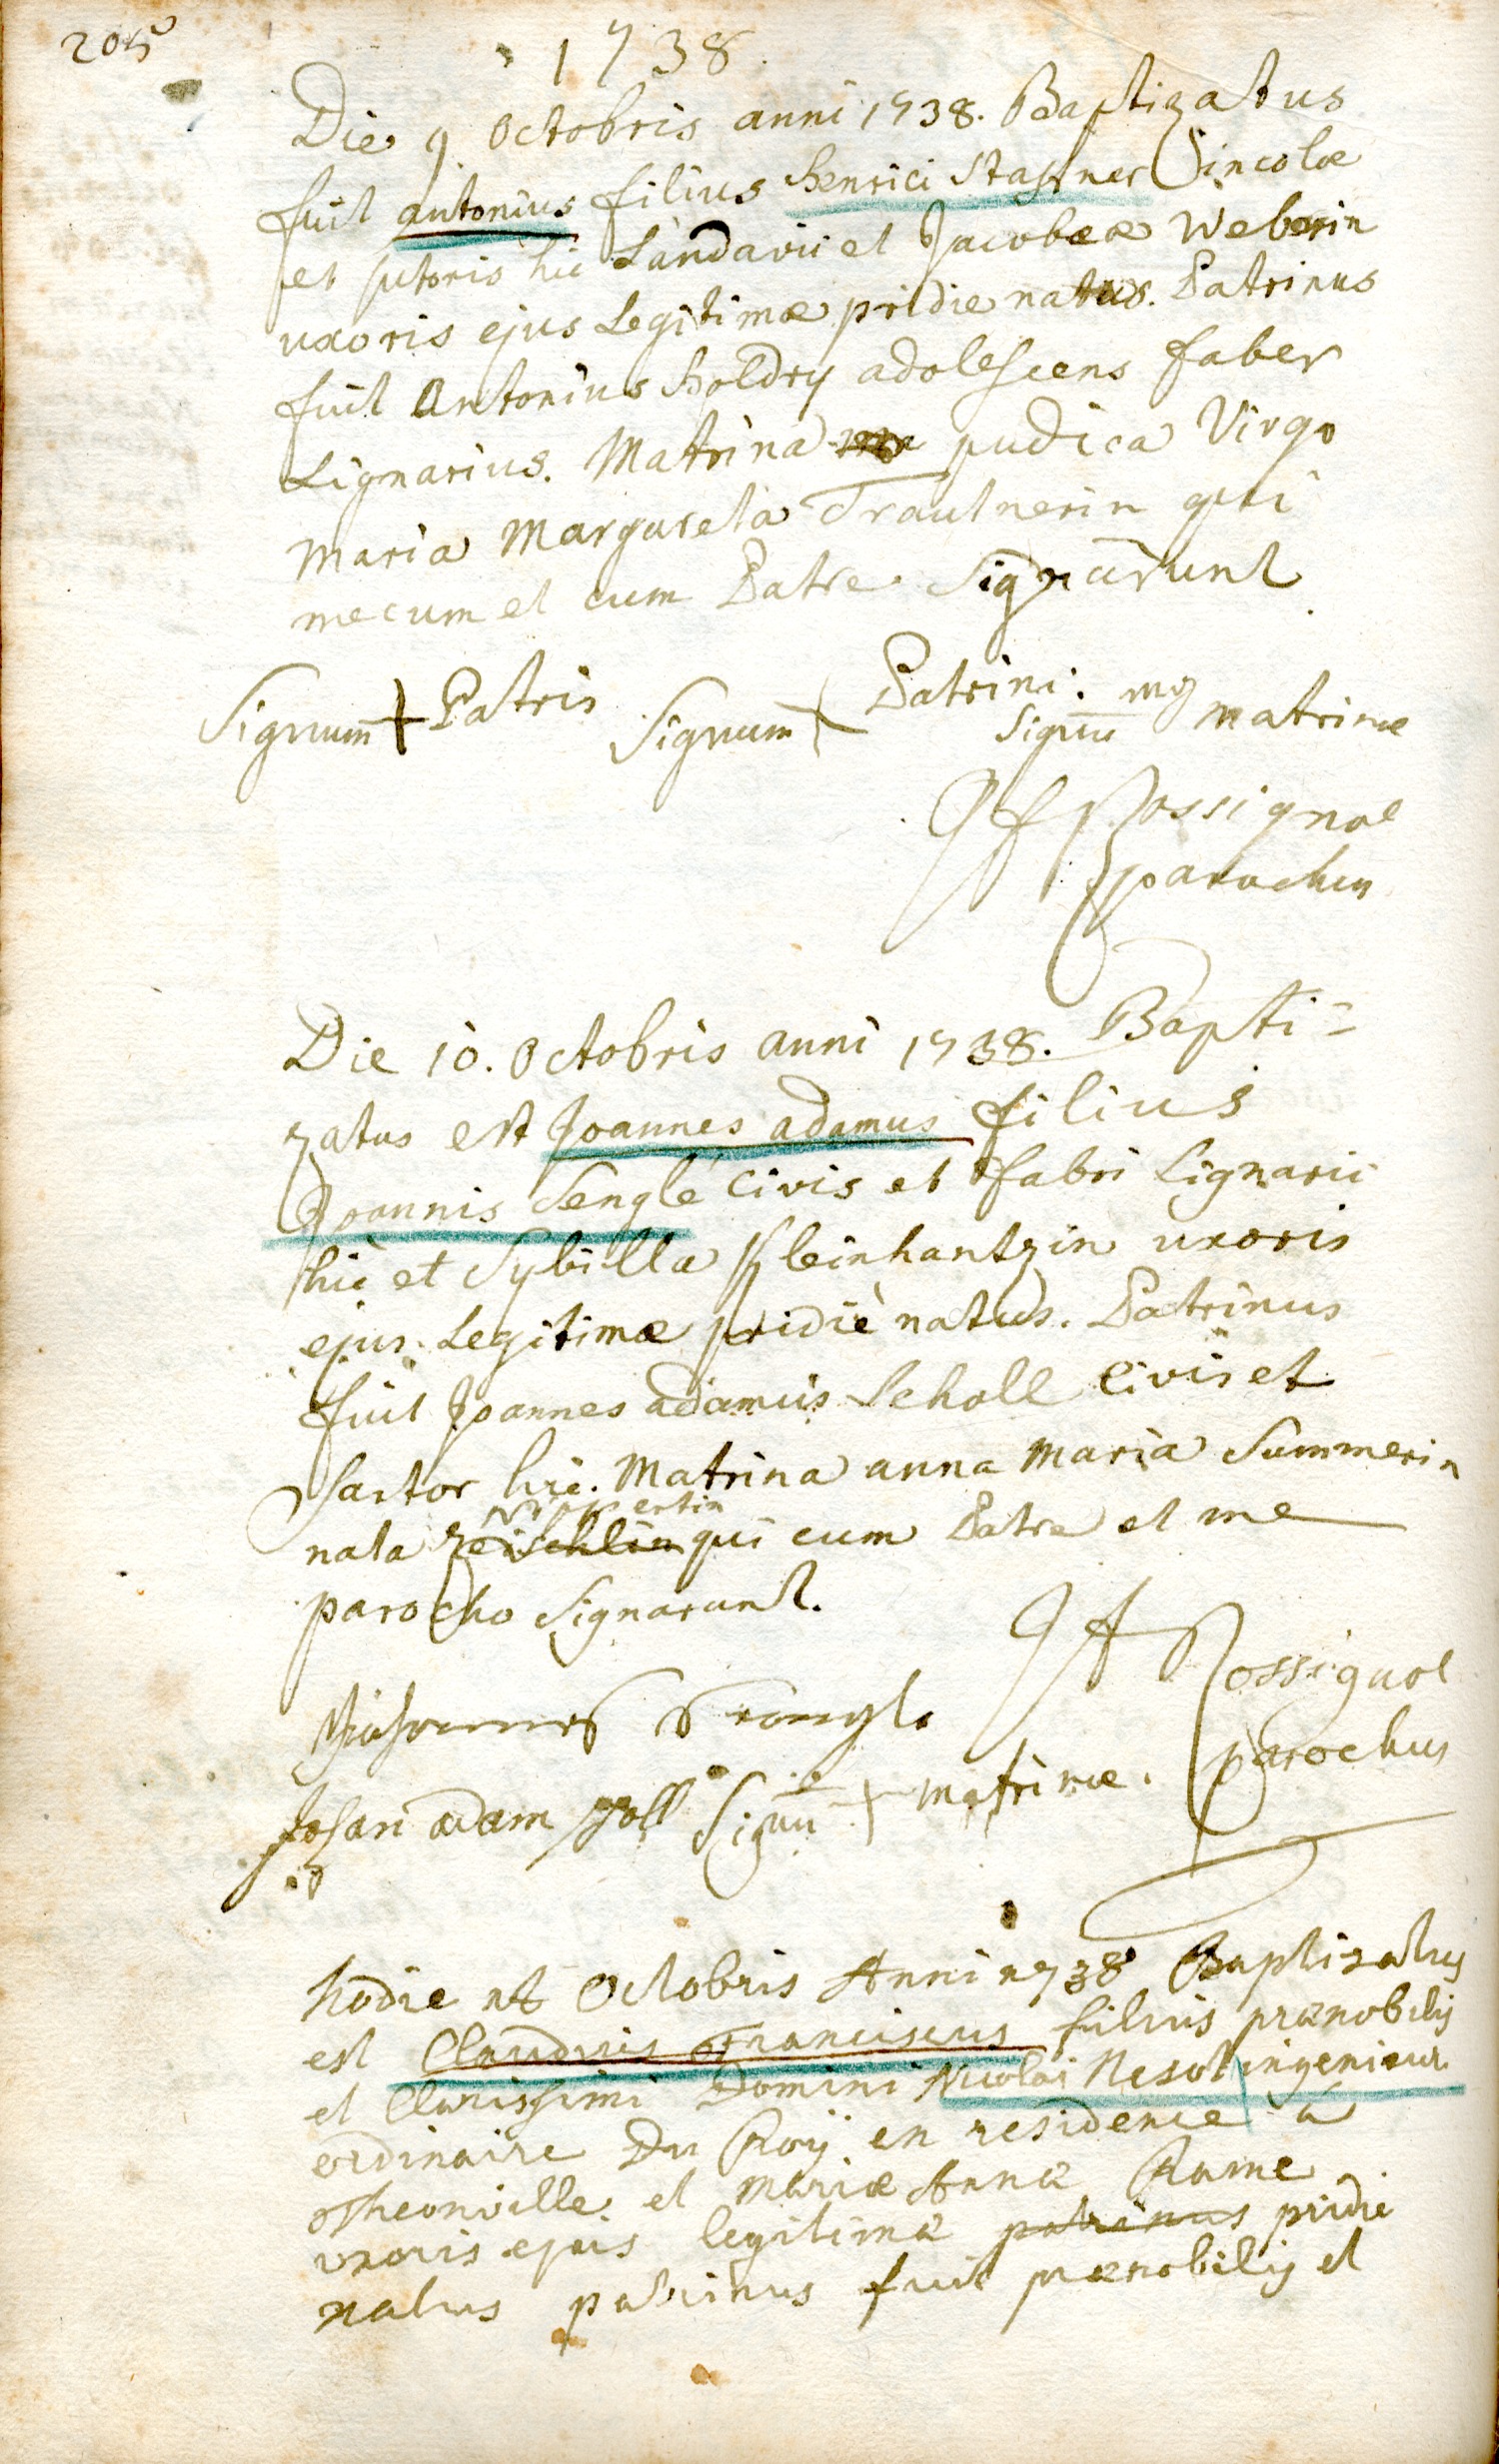 205
1738.
Die 9 Octobris anni 1738. Baptizatus
fuit antonius filius henrici Stassner incolæ
et sutoris hic Landavii et Jacobeæ Weberin
uxoris ejus Legitimæ pridie natus. Patrinus
fuit Antonius holdry adolescens faber
Lignarius. Matrina pudica Virgo
Maria Margareta Trautnerin qui
mecum et cum Patre Signarunt
Signum + Patris Signum + Patrini.
Signū matrinæ
JARossignol
parochus
Die 10. Octobris anni 1738. Bapti=
zatus est Joannes adamus filius
Joannis Sengle Civis et fabri Lignarii
hic et Sybilla Kleinhantzin uxoris
ejus Legitimæ pridiè natus. Patrinus
fuit Joannes adamus Scholl Civis et
Sartor hic. Matrina anna Maria Summerin
nata qui cum Patre et me
parocho Signarunt.
JARossignol
parochus
Johannes
Johan adam scholl Signū + matrinæ.
hodie Octobris Anni 1738 Baptisatus
est Claudius Franciscus filius prænobilis
et Clarissimi Domini Nicolai Nesot ingenieur
ordinaire Du Roy en residence à
Theonville et Mariæ Annæ Rame
uxoris ejus legitimæ patrinus pridie
natus patrinus fuit prænobilis et